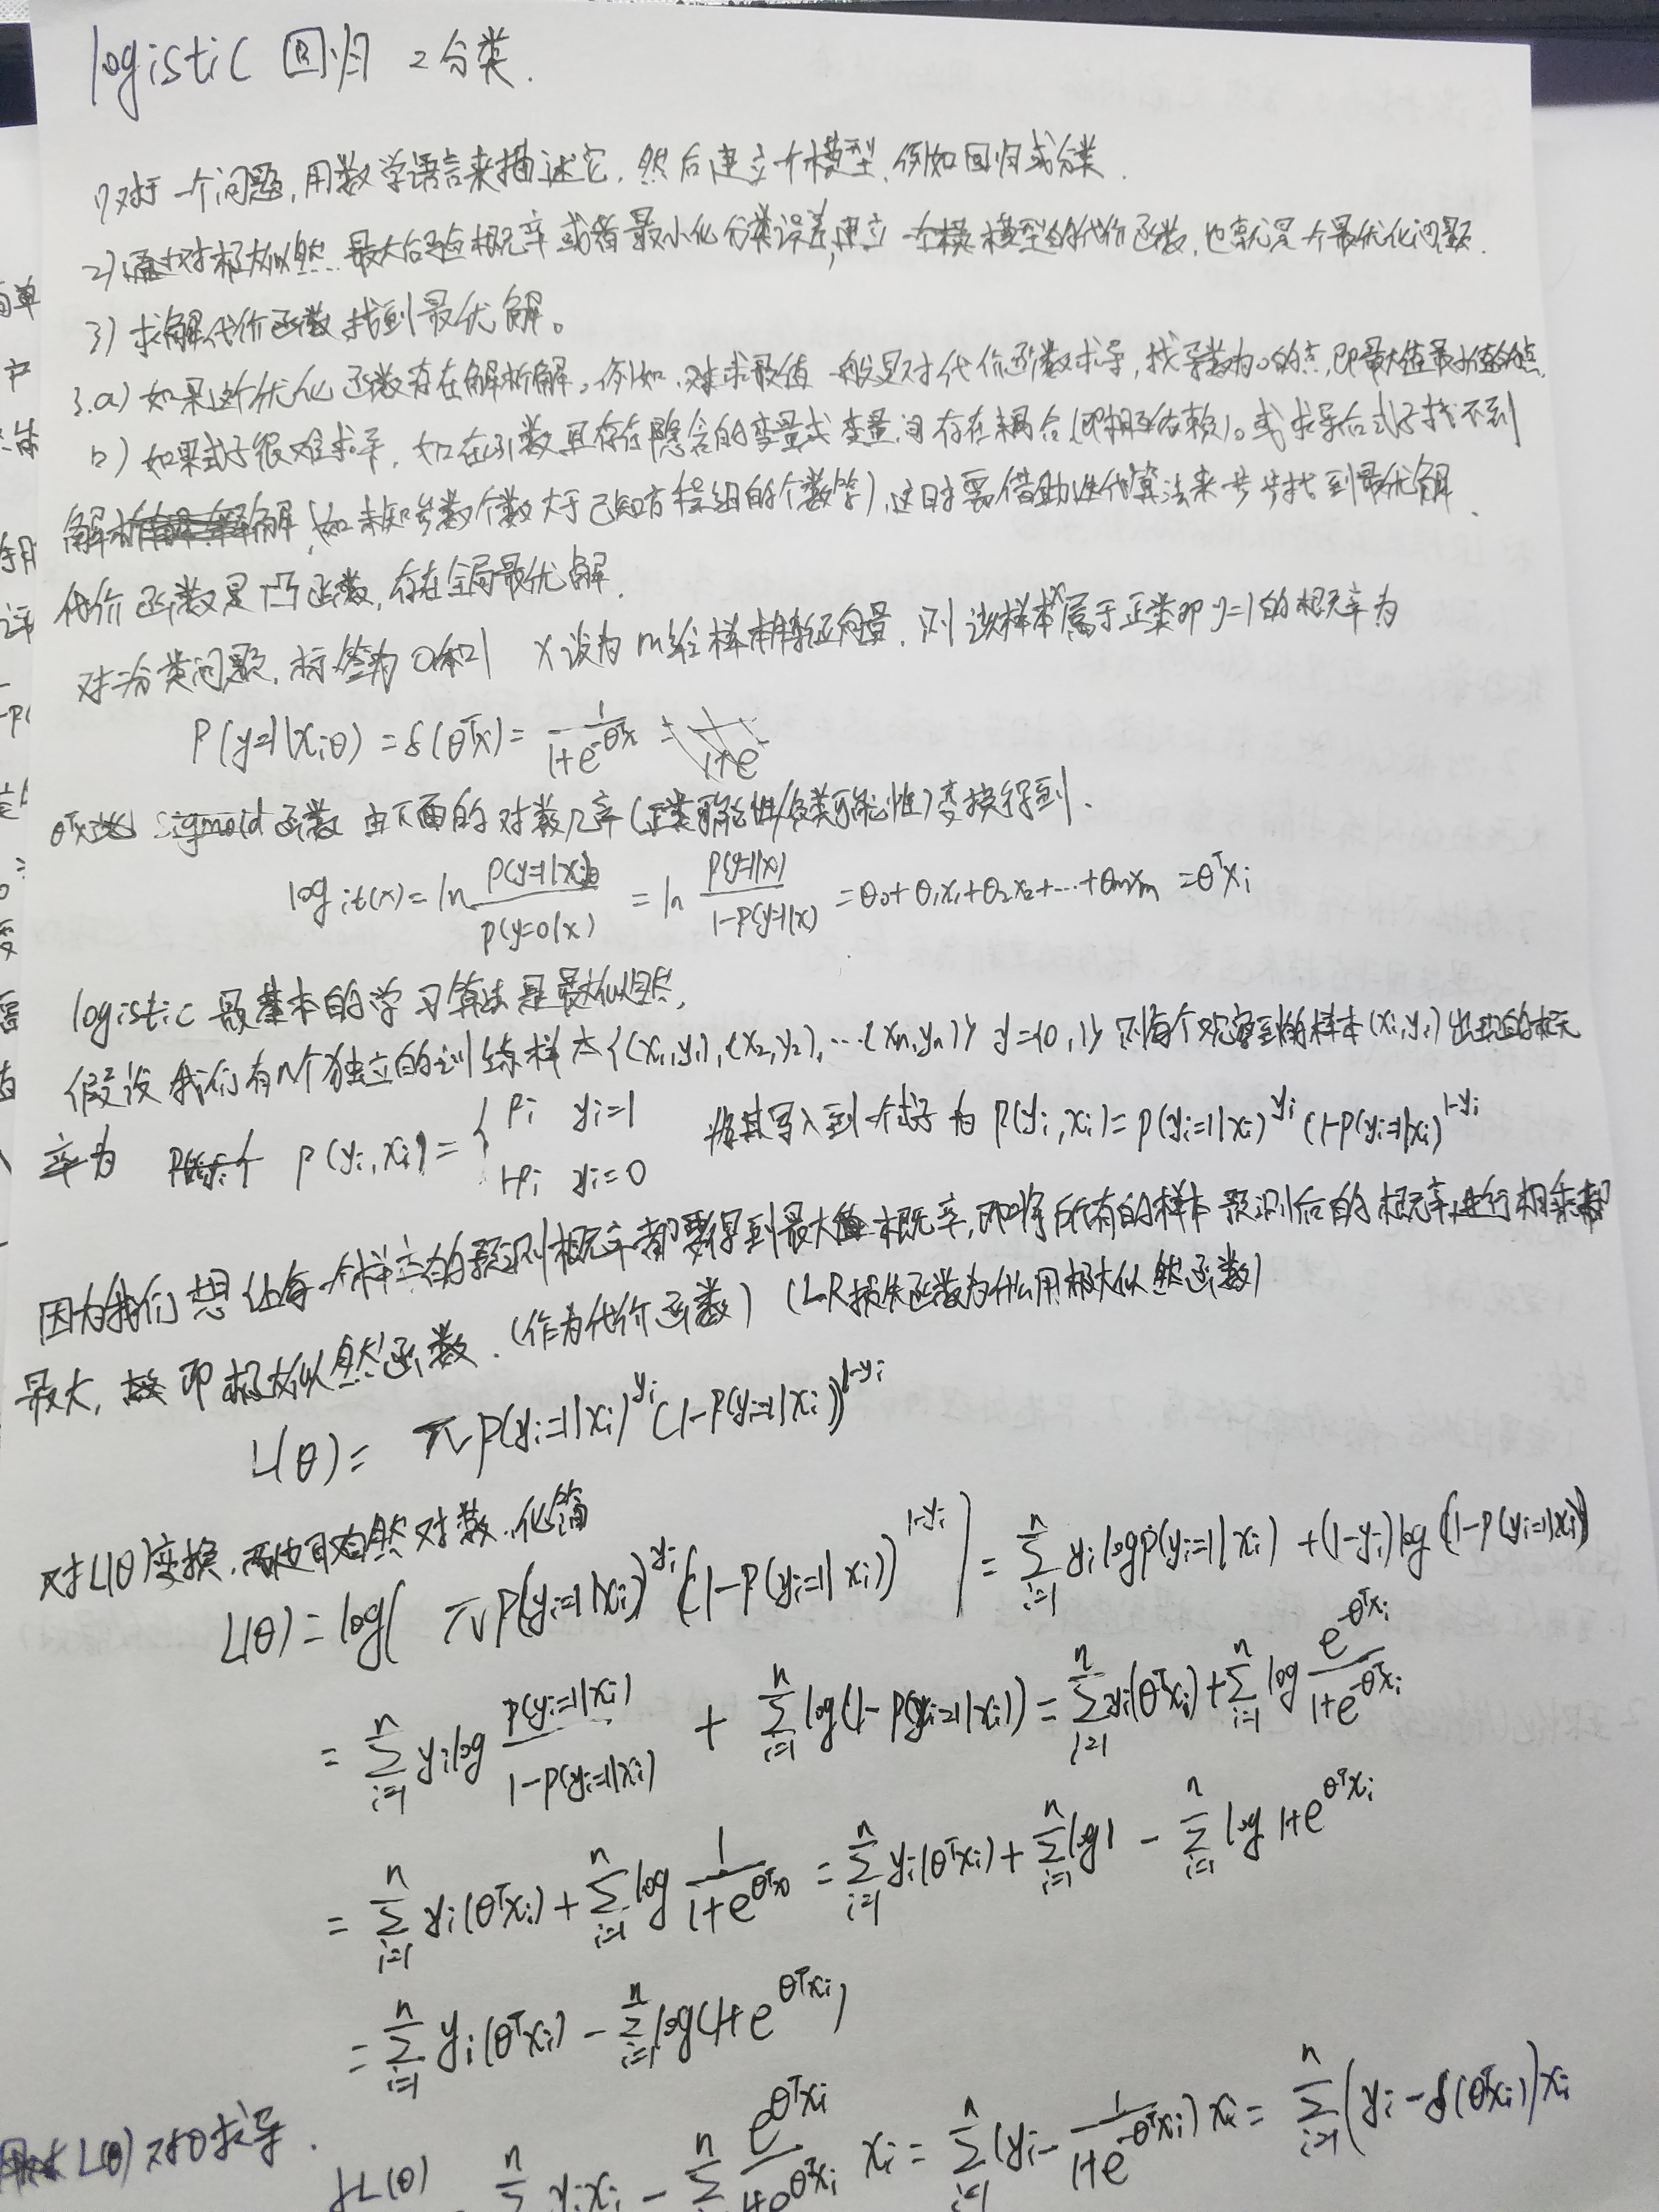 logistic 回归 2分类.
1) 对于一个问题, 用数学语言来描述它, 然后建立个模型, 例如回归或分类.
2) 通过对极大似然 最大后验概率 或者最小化分类误差, 建立一个模型的代价函数, 也就是个最优化问题.
3) 求解代价函数 找到最优解。
3.a) 如果这个优化函数存在解析解。例如, 对求最值一般是对代价函数求导, 找导数为0的点, 即最大值最小值的点.
b) 如果式子很难求导, 如在函数里存在隐含的变量或变量间存在耦合(即相互依赖)。或求导后式子找不到
解析解 (如未知参数个数大于已知方程组的个数等), 这时需借助迭代算法来步步找到最优解.
代价函数是凸函数, 存在全局最优解.
对二分类问题, 标签为0和1 x设为m维样本特征向量, 则该样本x属于正类即y=1的概率为
P(y=1|x;θ) = δ(θᵀx) = 1/(1+e^(-θᵀx))
sigmoid 函数 由下面的对数几率 (正类可能性/负类可能性) 变换得到.
logit(x) = ln P(y=1|x)/P(y=0|x) = ln P(y=1|x)/(1-P(y=1|x)) = θ₀+θ₁x₁+θ₂x₂+…+θₘxₘ = θᵀxᵢ
logistic 最基本的学习算法是最大似然,
假设我们有n个独立的训练样本 {(x₁,y₁), (x₂,y₂), …(xₙ,yₙ)} y={0,1} 则每个观察到的样本(xᵢ,yᵢ) 出现的概
率为 P(yᵢ,xᵢ) = { Pᵢ yᵢ=1
1-Pᵢ yᵢ=0 将其写入到一个式子为 P(yᵢ,xᵢ) = P(yᵢ=1|xᵢ)^yᵢ (1-P(yᵢ=1|xᵢ)^(1-yᵢ)
因为我们想让每一个样本的预测概率都要得到最大概率, 即将所有的样本预测后的概率进行相乘都
最大, 即极大似然函数. (作为代价函数) (LR损失函数为什么用极大似然函数)
L(θ) = π P(yᵢ=1|xᵢ)^yᵢ (1-P(yᵢ=1|xᵢ))^(1-yᵢ)
对L(θ)变换, 两边取自然对数, 化简
L(θ) = log( π P(yᵢ=1|xᵢ)^yᵢ (1-P(yᵢ=1|xᵢ))^(1-yᵢ) ) = Σᵢ₌₁ⁿ yᵢ log P(yᵢ=1|xᵢ) + (1-yᵢ) log (1-P(yᵢ=1|xᵢ))
= Σᵢ₌₁ⁿ yᵢ log P(yᵢ=1|xᵢ)/(1-P(yᵢ=1|xᵢ)) + Σᵢ₌₁ⁿ log(1-P(yᵢ=1|xᵢ)) = Σᵢ₌₁ⁿ yᵢ(θᵀxᵢ) + Σᵢ₌₁ⁿ log e^(-θᵀxᵢ)/(1+e^(-θᵀxᵢ))
= Σᵢ₌₁ⁿ yᵢ(θᵀxᵢ) + Σᵢ₌₁ⁿ log 1/(1+e^(θᵀxᵢ)) = Σᵢ₌₁ⁿ yᵢ(θᵀxᵢ) + Σᵢ₌₁ⁿ log1 - Σᵢ₌₁ⁿ log 1+e^(θᵀxᵢ)
= Σᵢ₌₁ⁿ yᵢ(θᵀxᵢ) - Σᵢ₌₁ⁿ log(1+e^(θᵀxᵢ))
L(θ) 对θ求导.
∂L(θ) = Σⁿ yᵢxᵢ - Σⁿ e^(θᵀxᵢ)/(1+e^(θᵀxᵢ)) xᵢ = Σᵢ₌₁ⁿ (yᵢ - 1/(1+e^(-θᵀxᵢ))) xᵢ = Σᵢ₌₁ⁿ (yᵢ - δ(θᵀxᵢ)) xᵢ